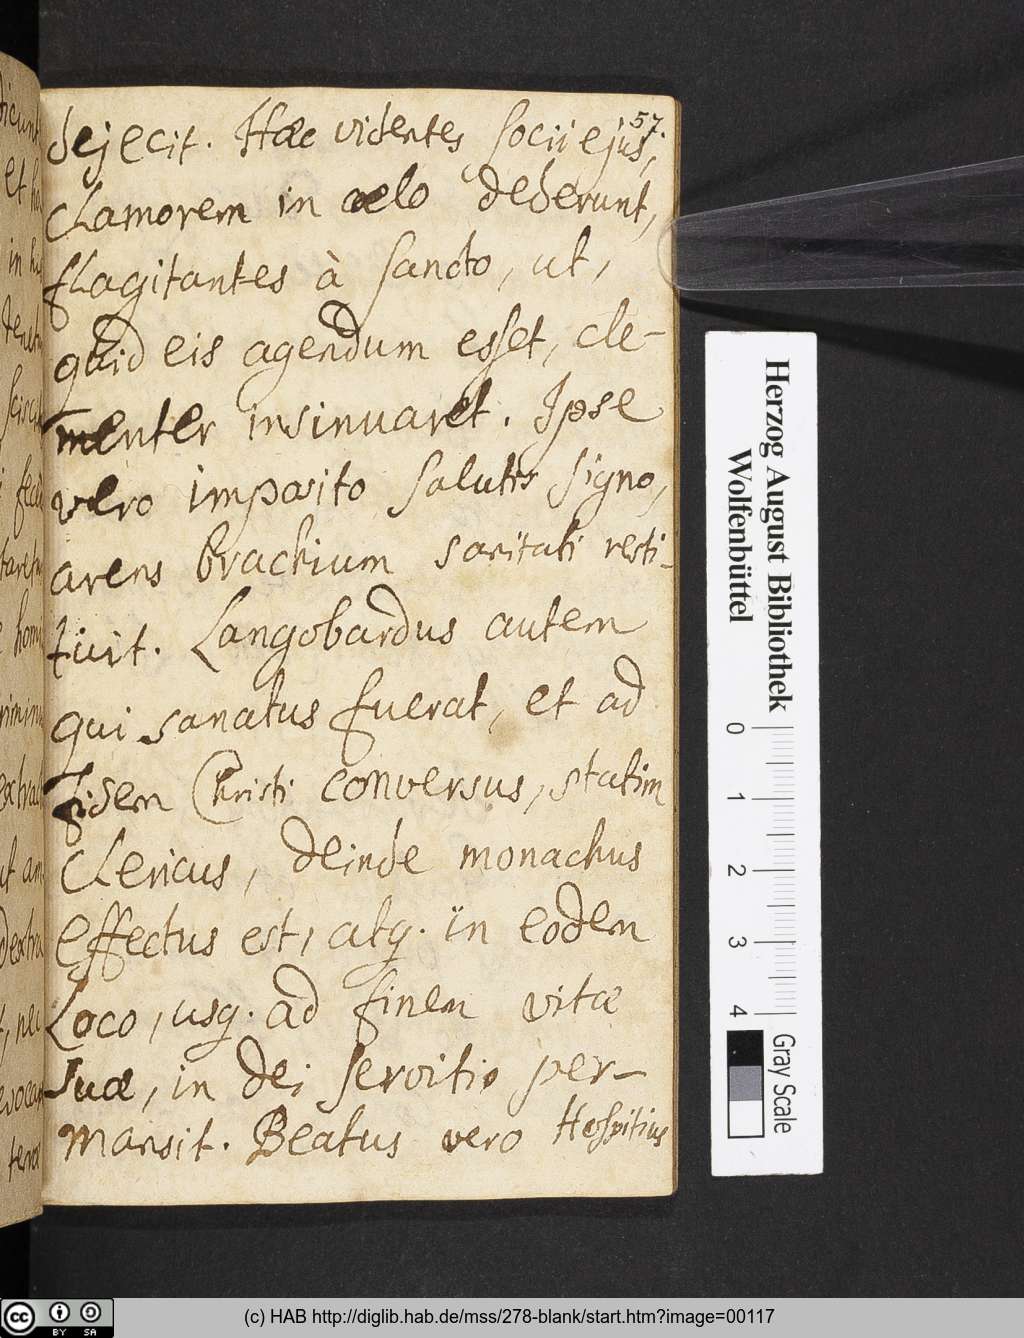 57.
dejecit. Hæc videntes socii ejus,
clamorem in cælo dederunt,
flagitantes à sancto, ut,
quid eis agendum esset, cle-
menter insinuaret. Ipse
vero imposito salutis signo,
arens brachium sanitati resti-
tuit. Langobardus autem
qui sanatus fuerat, et ad
fidem Christi conversus, statim
clericus, deinde monachus
effectus est, atq. in eodem
Loco, usq. ad finem vitæ
suæ, in dei servitio per-
mansit. Beatus vero Hospitius
Herzog August Bibliothek
Wolfenbüttel
0 1 2 3 4
Gray Scale
(c) HAB http://diglib.hab.de/mss/278-blank/start.htm?image=00117
cc BY SA